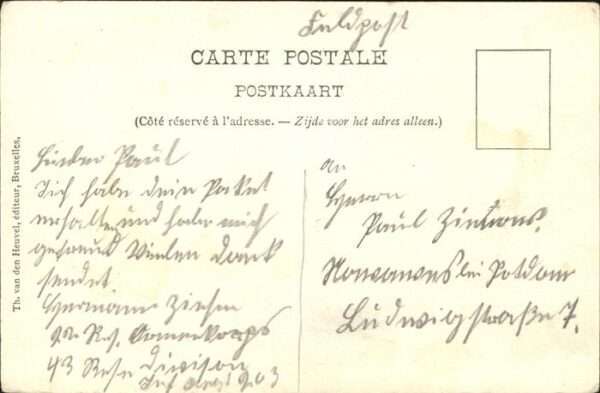 Feldpost
CARTE POSTALE
POSTKAART
(Côté réservé à l'adresse. — Zijde voor het adres alleen.)
Th. van den Heuvel, éditeur, Bruxelles.
Lieber Paul
Ich habe dein Paket
erhalten und habe mich
gefreut Vielen Dank
sendet
Hermann
Res.
43 Division
203
An
Herrn
Paul
Nowawes bei Potsdam
Ludwigstraße 7.